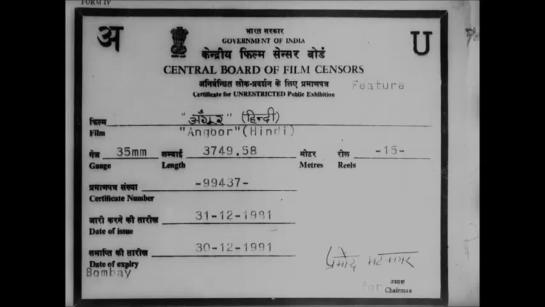 FORM IV
भारत सरकार
GOVERNMENT OF INDIA
केन्द्रीय फिल्म सेन्सर बोर्ड
अ U
CENTRAL BOARD OF FILM CENSORS
अनिर्बन्धित लोक-प्रदर्शन के लिए प्रमाणपत्र Feature
Certificate for UNRESTRICTED Public Exhibition
फिल्म "अँगूर" (हिन्दी)
Film "Angoor"(Hindi)
गेज 35mm लम्बाई 3749.58 मीटर रील -15-
Gauge Length Metres Reels
प्रमाणपत्र संख्या -99437-
Certificate Number
जारी करने की तारीख 31-12-1981
Date of issue
समाप्ति की तारीख 30-12-1991
Date of expiry
Bombay
अध्यक्ष
for Chairman